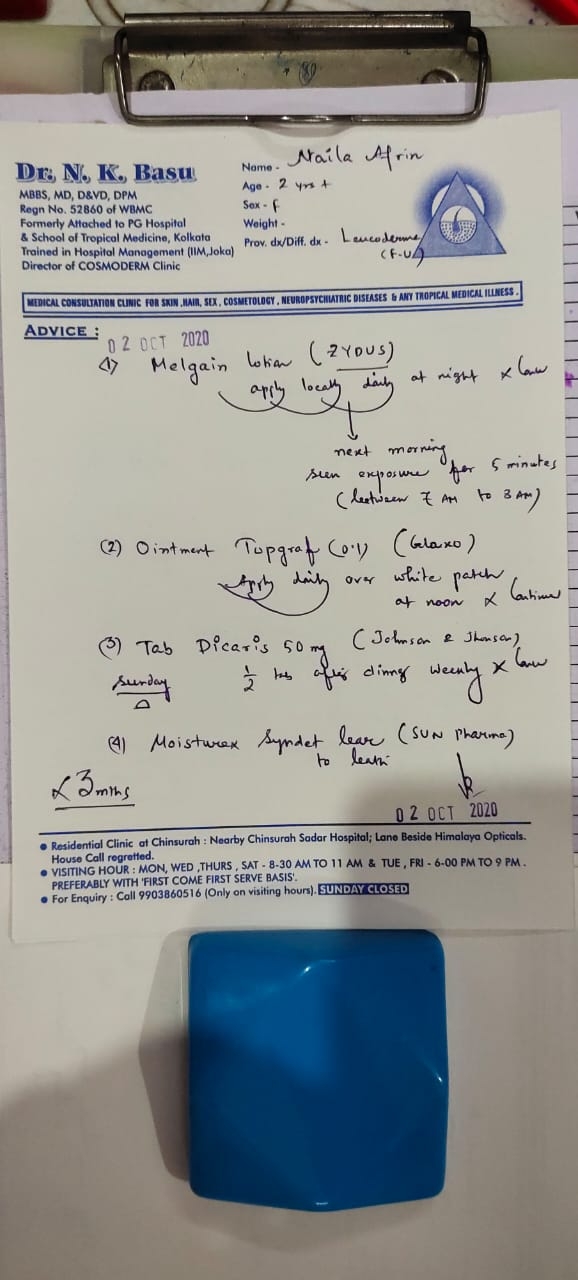 Dr. N. K. Basu
MBBS, MD, D&VD, DPM
Regn No. 52860 of WBMC
Formerly Attached to PG Hospital
& School of Tropical Medicine, Kolkata
Trained in Hospital Management (IIM,Joka)
Director of COSMODERM Clinic
Name - Naila Afrin
Age - 2 yrs +
Sex - f
Weight -
Prov. dx/Diff. dx - Leucoderma
(F-U)
MEDICAL CONSULTATION CLINIC FOR SKIN ,HAIR, SEX , COSMETOLOGY , NEUROPSYCHIATRIC DISEASES & ANY TROPICAL MEDICAL ILLNESS .
ADVICE :
02 OCT 2020
(1) Melgain lotion (ZYDUS)
apply locally daily at night x
next morning
exposure for 5 minutes
(between 7 AM to 8 AM)
(2) Ointment Topgraf (0.1) (Glaxo)
Apply daily over white patch
at noon x Continue
(3) Tab Dicaris 50 mg (Johnson & Jhonson)
Sunday
1/2 tab after weekly x
(4) Moisturex Syndet (SUN Pharma)
to
x 3 mths
02 OCT 2020
• Residential Clinic at Chinsurah : Nearby Chinsurah Sadar Hospital; Lane Beside Himalaya Opticals.
House Call regretted.
• VISITING HOUR : MON, WED ,THURS , SAT - 8-30 AM TO 11 AM & TUE , FRI - 6-00 PM TO 9 PM .
PREFERABLY WITH 'FIRST COME FIRST SERVE BASIS'.
• For Enquiry : Call 9903860516 (Only on visiting hours). SUNDAY CLOSED